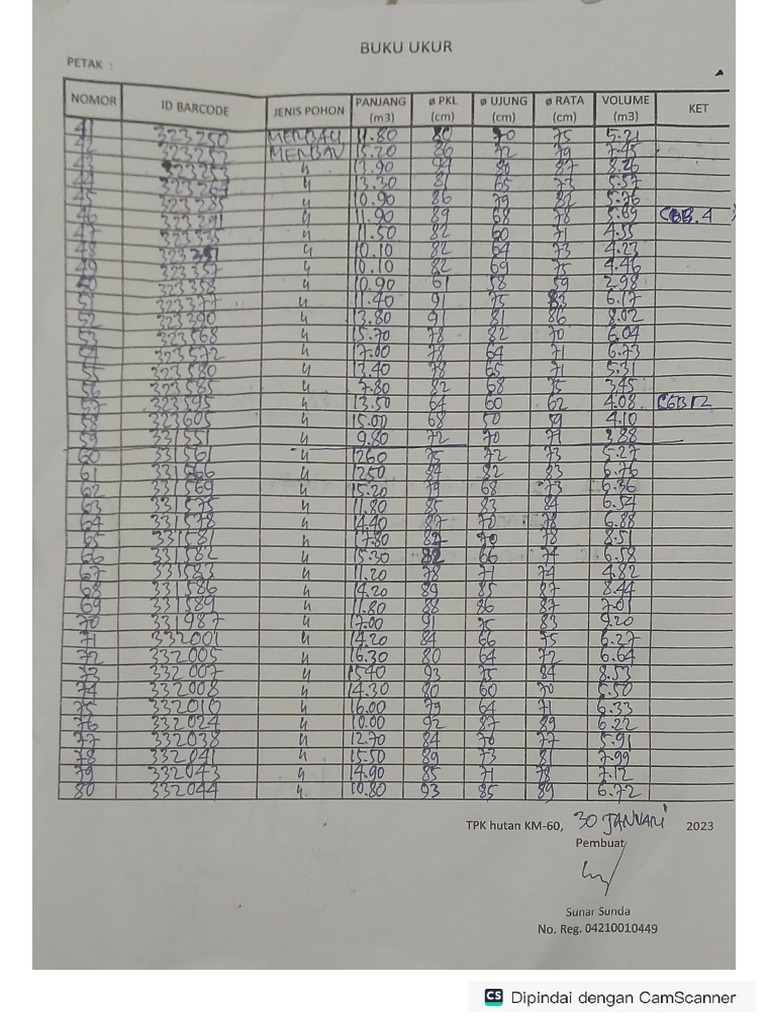 BUKU UKUR
PETAK :
NOMOR ID BARCODE JENIS POHON PANJANG (m3) ø PKL (cm) ø UJUNG (cm) ø RATA (cm) VOLUME (m3) KET
41 323250 MERBAU 11.80 80 70 75 5.21
42 323252 MERBAU 15.20 86 72 79 7.45
43 323253 〃 13.90 94 80 87 8.26
44 〃 13.30 81 65 73 5.57
45 323285 〃 10.90 86 79 82 5.76
46 323291 〃 11.90 89 68 78 5.69
47 323335 〃 11.50 82 60 71 4.55
48 〃 10.10 82 64 73 4.23
49 323357 〃 10.10 82 69 75 4.46
50 323358 〃 10.90 61 58 59 2.98
51 323377 〃 11.40 91 75 83 6.17
52 323390 〃 13.80 91 81 86 8.02
53 323568 〃 15.70 78 82 70 6.04
54 323572 〃 17.00 78 64 71 6.73
55 323580 〃 13.40 78 65 71 5.31
56 323585 〃 7.80 82 68 75 3.45
57 323595 〃 13.50 64 60 62 4.08
58 323605 〃 15.00 68 50 59 4.10
59 331551 〃 9.80 72 70 71 3.88
60 331561 〃 1260 75 72 73 5.27
61 331566 〃 1250 84 82 83 6.76
62 331569 〃 15.20 79 68 73 6.36
63 331575 〃 11.80 85 83 84 6.54
64 331578 〃 14.40 87 70 78 6.88
65 331581 〃 17.80 87 70 78 8.51
66 331582 〃 15.30 82 66 74 6.58
67 331583 〃 11.20 78 71 74 4.82
68 331586 〃 14.20 89 85 87 8.44
69 331589 〃 11.80 88 86 87 7.01
70 331987 〃 17.00 91 75 83 9.20
71 332001 〃 14.20 84 66 75 6.27
72 332005 〃 16.30 80 64 72 6.64
73 332007 〃 1540 93 75 84 8.53
74 332008 〃 14.30 80 60 70 5.50
75 332010 〃 16.00 79 64 71 6.33
76 332024 〃 10.00 92 87 89 6.22
77 332038 〃 12.70 84 70 77 5.91
78 332041 〃 15.50 89 73 81 7.99
79 332043 〃 14.90 85 71 78 7.12
80 332044 〃 10.80 93 85 89 6.72
TPK hutan KM-60, 30 JANUARI 2023
Pembuat
Sunar Sunda
No. Reg. 04210010449
CS Dipindai dengan CamScanner